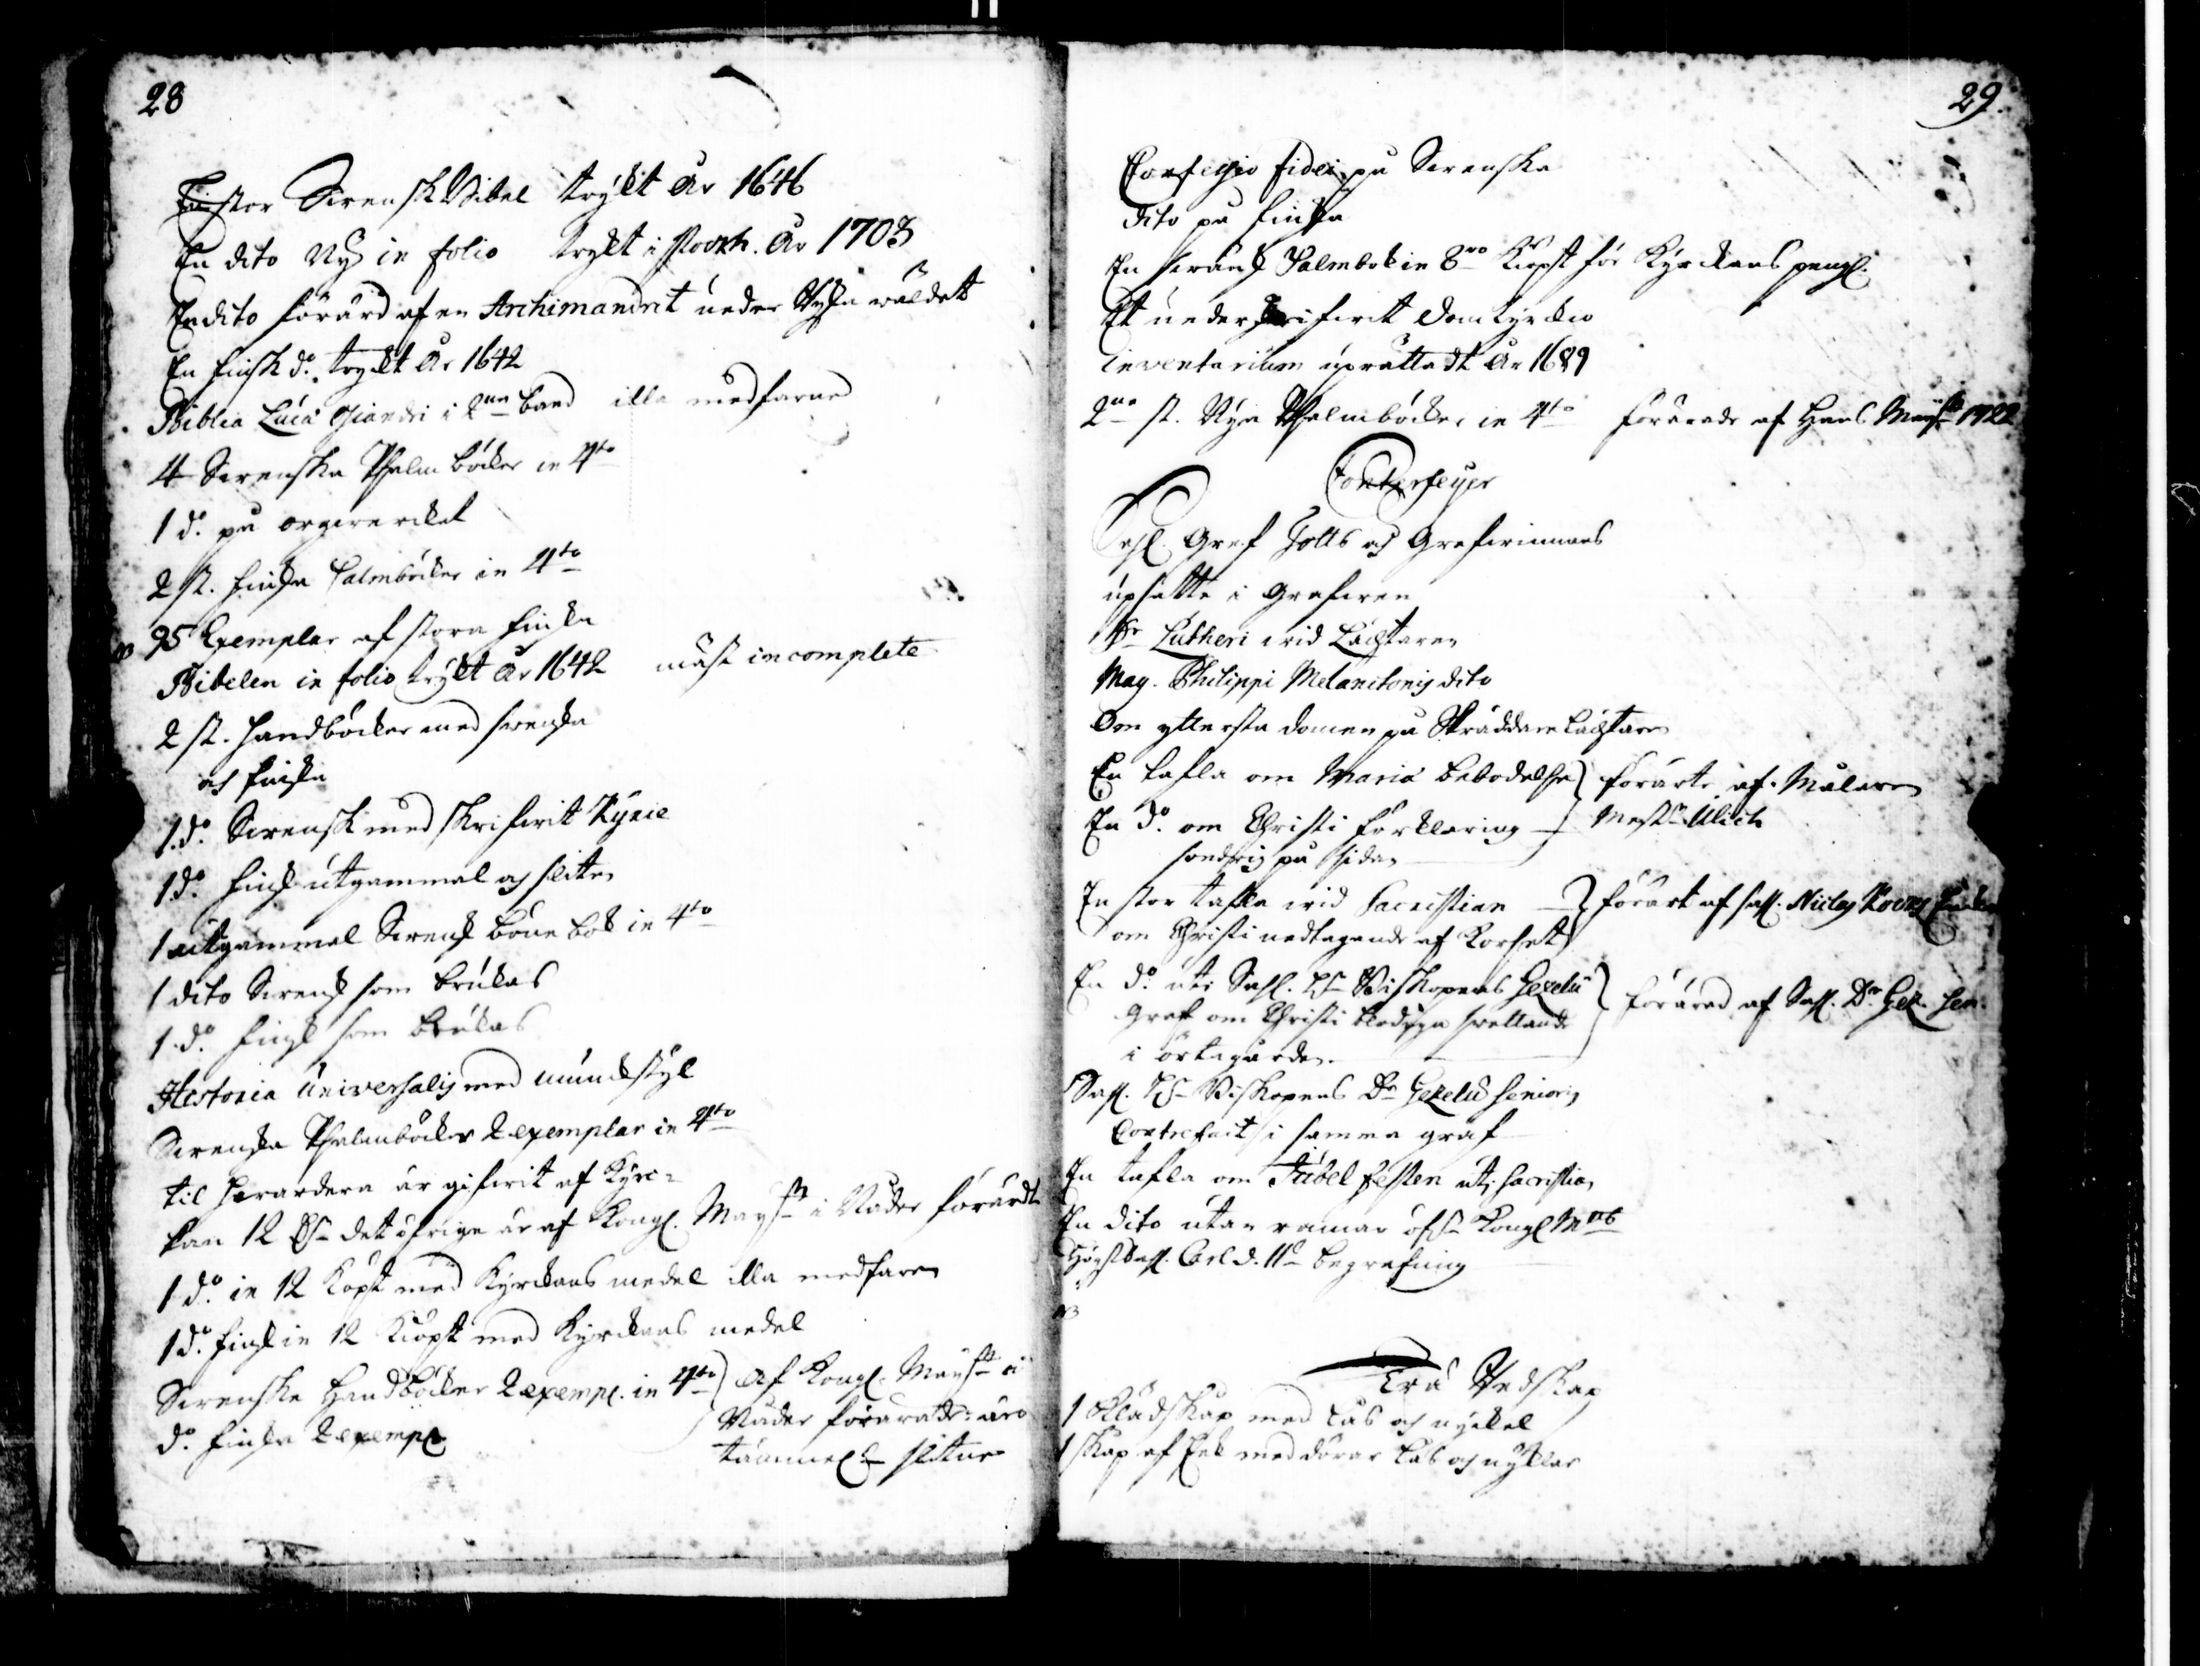 28
En stor Svensk Bibel trÿckt År 1646
En dito Nÿ in folio tryckt i Stockh. År 1703
En dito förärd af en Archimandrit under Rÿska wäldett
En finsk do. tryckt År 1642
Biblia Lucæ Osiandri i 2ne band illa medfarne
4 Svenska Psalm böcker in 4to
1 do. på orgewercket
2 st. finska Psalmböcker in 4to
NB 95 Exemplar af stora finska
Bibelen in folio trÿckt År 1642 mäst incomplete
2 st. Handböcker med swenska
och finska
1 do. Svensk med skrifwit Kÿrie
1 do. finsk utgammal och sliten
1 utgammal Svensk böne bok in 4to
1 dito Svensk som brukas
1 do. finsk som brukas
Historia Universalis med munckstÿl
Svenska Psalmböcker 2 exemplar in 4to
til  är gifwit af Kÿrc-
kan 12 det öfrige är af Kongl. Maÿst i Nåder förärdt
1 do. in 12 köpt med Kÿrckans medel illa medfaren
1 do. finsk in 12 Kiöpt med Kÿrckans medel
Svenske Handböcker 2 exempl. in 4to af Kongl. Maÿstt i
do. finske 2 exempl. Nåder förärade: äro
tämmel. slitne
29.
Confessio fidei på Svenska
dito på finska
En swänsk Psalmbok in 8vo Kiöpt för Kÿrckans pengl.
Ett underskrifwit Domkÿrckio
inventarium uprättadt År 1689
2ne st. Nÿa Psalmböcker in 4to förärade af Hans Maÿst 1722
Conterfeÿer
Sahl. Gref Totts och Grefwinnans
upsatte i Grafwen
Dr Lutheri wid Lächtaren
Mag. Philippi Melanctonis dito
Om yttersta domen på Skräddare Lächtaren
En tafla om Mariæ bebodelse förärte af Målaren
En do. om Christi förklaring Mest. Ulich
sondrig på sidan
En stor tafla wid Sacristian förärt af sahl. Niclas
om Christi nedtagande af Korset
En do. uti Sahl. Hr Biskopens Gezelii förärad af Sahl. Dr. Gez. Sen.
Graf om Christi blodiga swettande
i örtegården.
Sahl. Hr Biskopens Dr Gezelii Senioris
Contrefait i samma graf
En tafla om Jubel festen uti sacristian
En dito utan ramar öfr Kongl Mtts
Högstsahl. Carl d. 11te begrafning
NB
Trä Redskap
1 Klädskap med Lås och nÿckel
1 skåp af Eek med dörar Lås och nÿklar